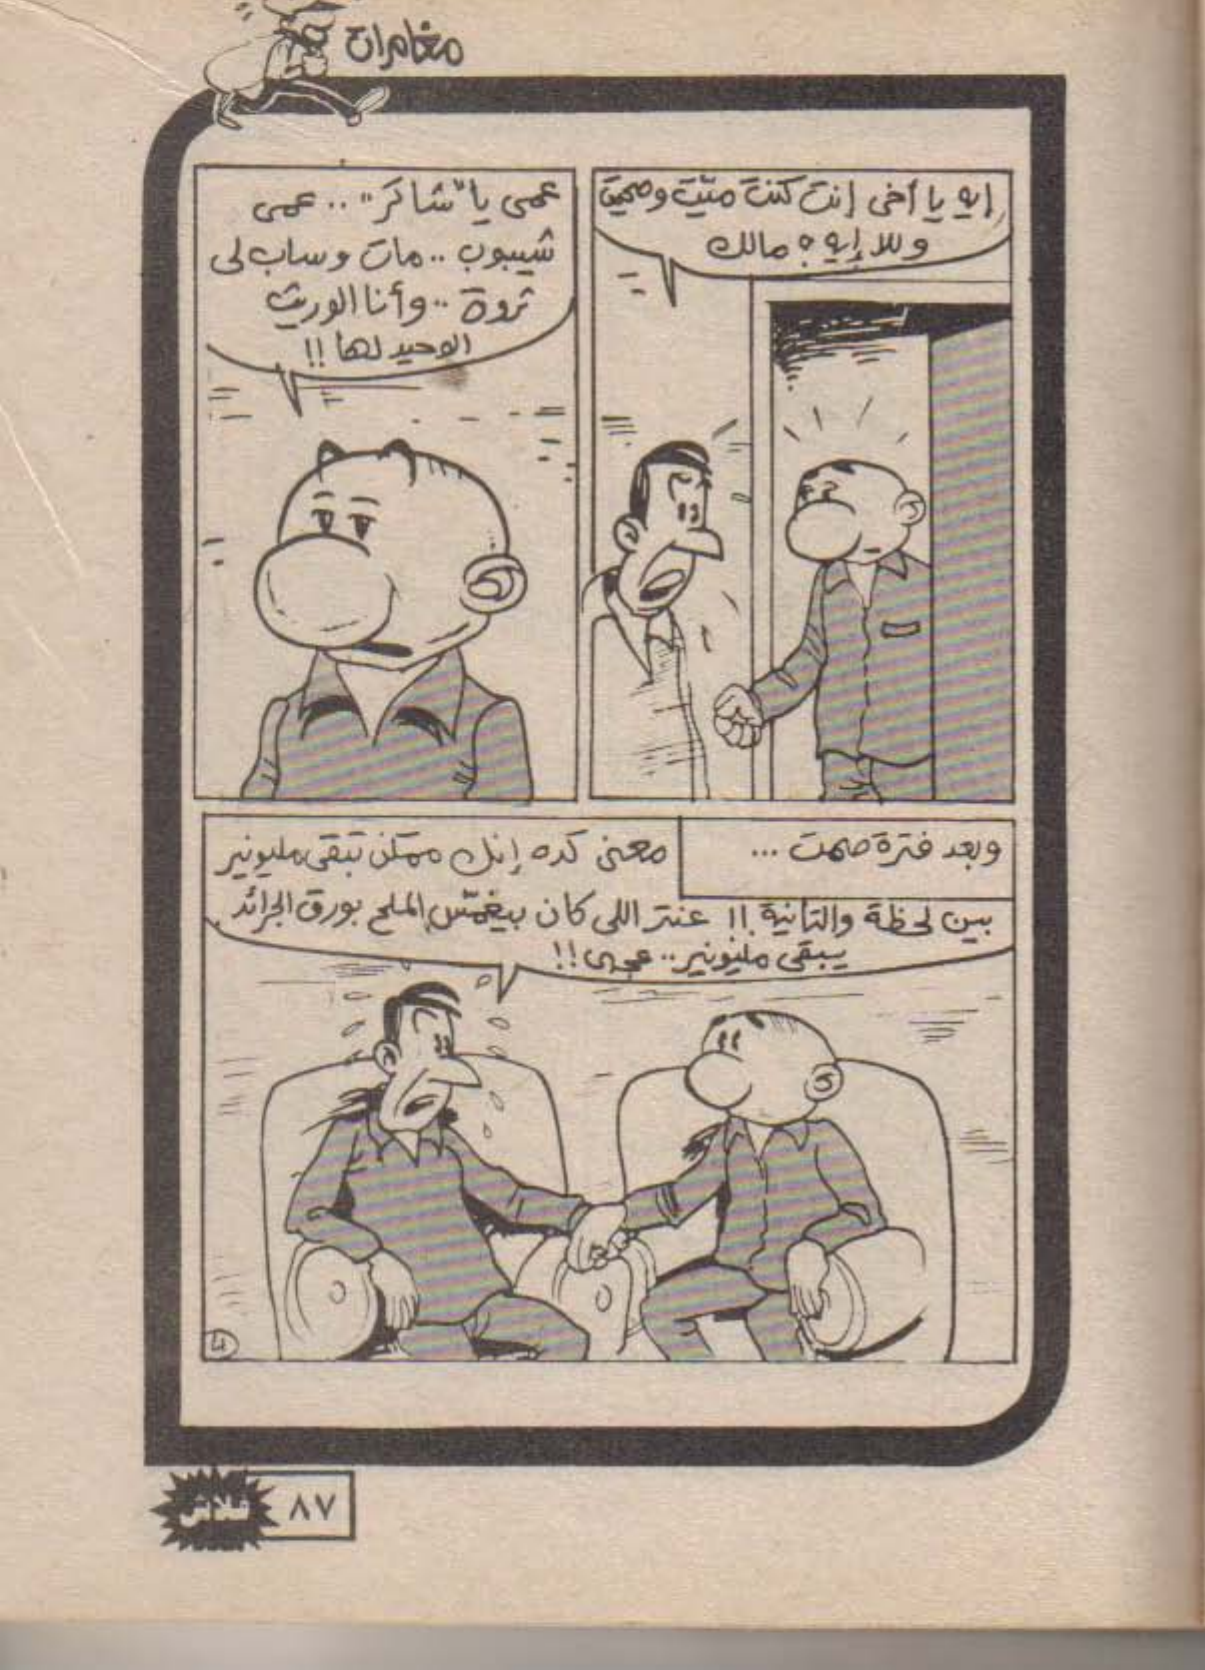 مغامرات
إيه يا أخى إنت كنت ميّت وصحيت
وللا إيه ؟ مالك
عمى يا "شاكر" .. عمى
شيبوب .. مات وساب لى
ثروة .. وأنا الوريث
الوحيد لها !!
وبعد فترة صمت ...
معنى كده إنك ممكن تبقى مليونير
بين لحظة والتانية !! عنتر اللى كان بيغمّس الملح بورق الجرائد
يبقى مليونير .. عجبى !!
٤
٨٧
فلاش